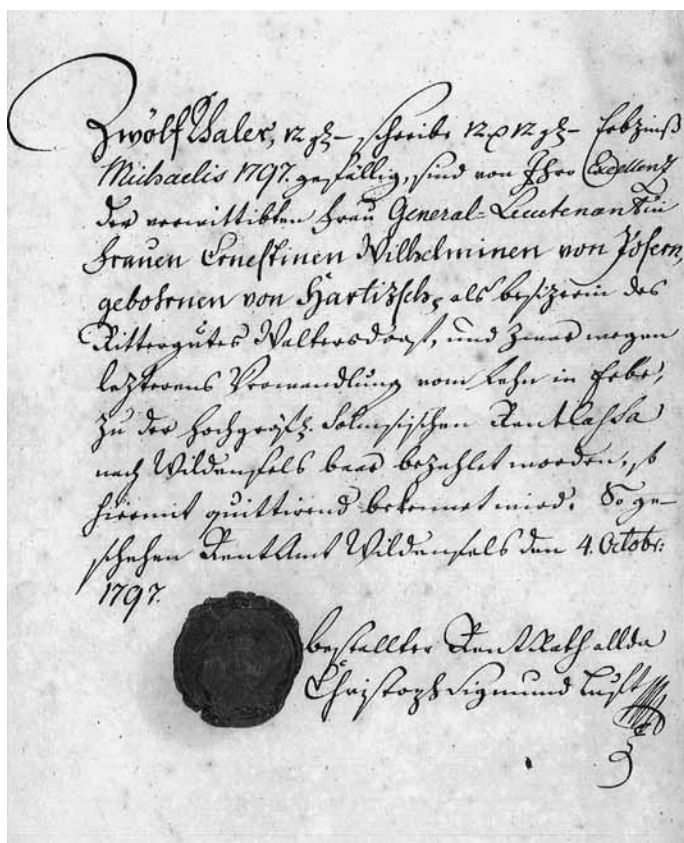 Zwölf Thaler, 12 gl. – schreibe 12 rh 12 gl. – Erbzinß
Michaelis 1797. gefällig, sind von Ihro Excellenz
der verwittibten Frau General-Lieutenantin
Frauen Ernestinen Wilhelminen von Posern,
gebohrnen von Hartizsch, als besizerin des
Rittergutes Waltersdorf, und zwar wegen
leztern Verwandlung vom Lehn in Erbe,
zu der hochgräfl. Solmsischen RentCassa
nach Wildenfels baar bezahlet worden, so
hiermit quittirend bekennet wird. So ge-
schehen RentAmt Wildenfels den 4. Octobr:
1797.
bestallter RentRath allda
Christoph Sigmund Luft